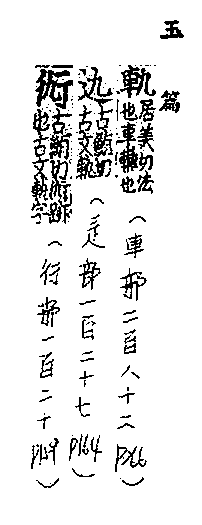 玉篇
軌 居美切法也車轍也 (車部二百八十二 P266)
古鮪切古文軌 (辵部一百二十七 P164)
古鮪切 跡也古文軌字 (行部一百二十 P159)